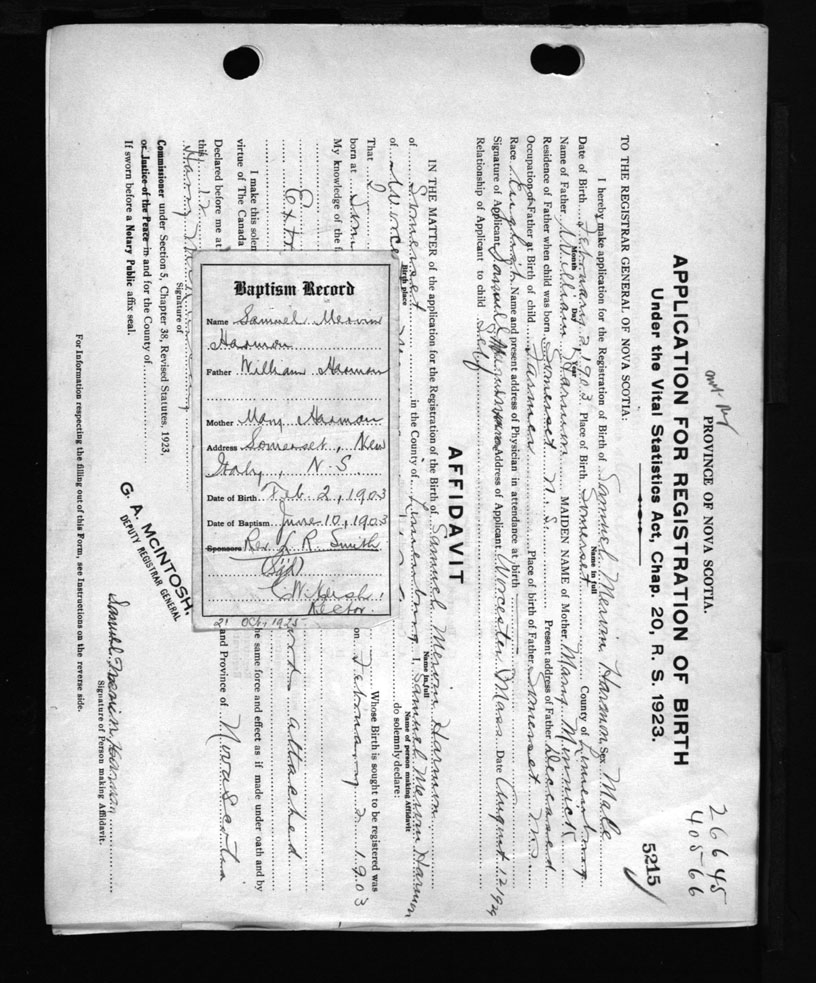 PROVINCE OF NOVA SCOTIA.
APPLICATION FOR REGISTRATION OF BIRTH
Under the Vital Statistics Act, Chap. 20, R. S. 1923.
26645
405-66
5215
TO THE REGISTRAR GENERAL OF NOVA SCOTIA:
I hereby make application for the Registration of Birth of Samuel Mervin Harmon Sex Male
Name in full
Date of Birth February 2, 1903 Place of Birth Somerset County of Lunenburg
Month Day Year
Name of Father William Harmon MAIDEN NAME of Mother Mary Minnick
Residence of Father when child was born Somerset N. S. Present address of Father Deceased
Occupation of Father at Birth of child Farmer Place of birth of Father Somerset N.S.
Race English Name and present address of Physician in attendance at birth
Signature of Applicant Samuel Mervin Harmon Address of Applicant Worcester Mass Date August 12 1924
Relationship of Applicant to child Self
AFFIDAVIT
IN THE MATTER of the application for the Registration of the Birth of Samuel Mervin Harmon
Name in full
of Somerset in the County of Lunenburg I, Samuel Mervin Harmon
Birth place
Name of person making Affidavit
of Worce do solemnly declare:
That I Whose Birth is sought to be registered was
born at Som on February 2 1903
My knowledge of the f
Extr attached
I make this solem the same force and effect as if made under oath and by
virtue of The Canada
Declared before me at and Province of Nova Scotia
this 12
Signature of
Samuel Mervin Harmon
Signature of Person making Affidavit.
Commissioner under Section 5, Chapter 38, Revised Statutes, 1923,
or Justice of the Peace in and for the County of
If sworn before a Notary Public affix seal.
G. A. McINTOSH.
DEPUTY REGISTRAR GENERAL
For Information respecting the filling out of this Form, see Instructions on the reverse side.
Baptism Record
Name Samuel Mervin
Harmon
Father William Harmon
Mother Mary Harmon
Address Somerset, New
N. S.
Date of Birth Feb. 2, 1903
Date of Baptism June 10, 1903
Sponsors Rev. R. Smith
Rector.
21 Oct, 1925